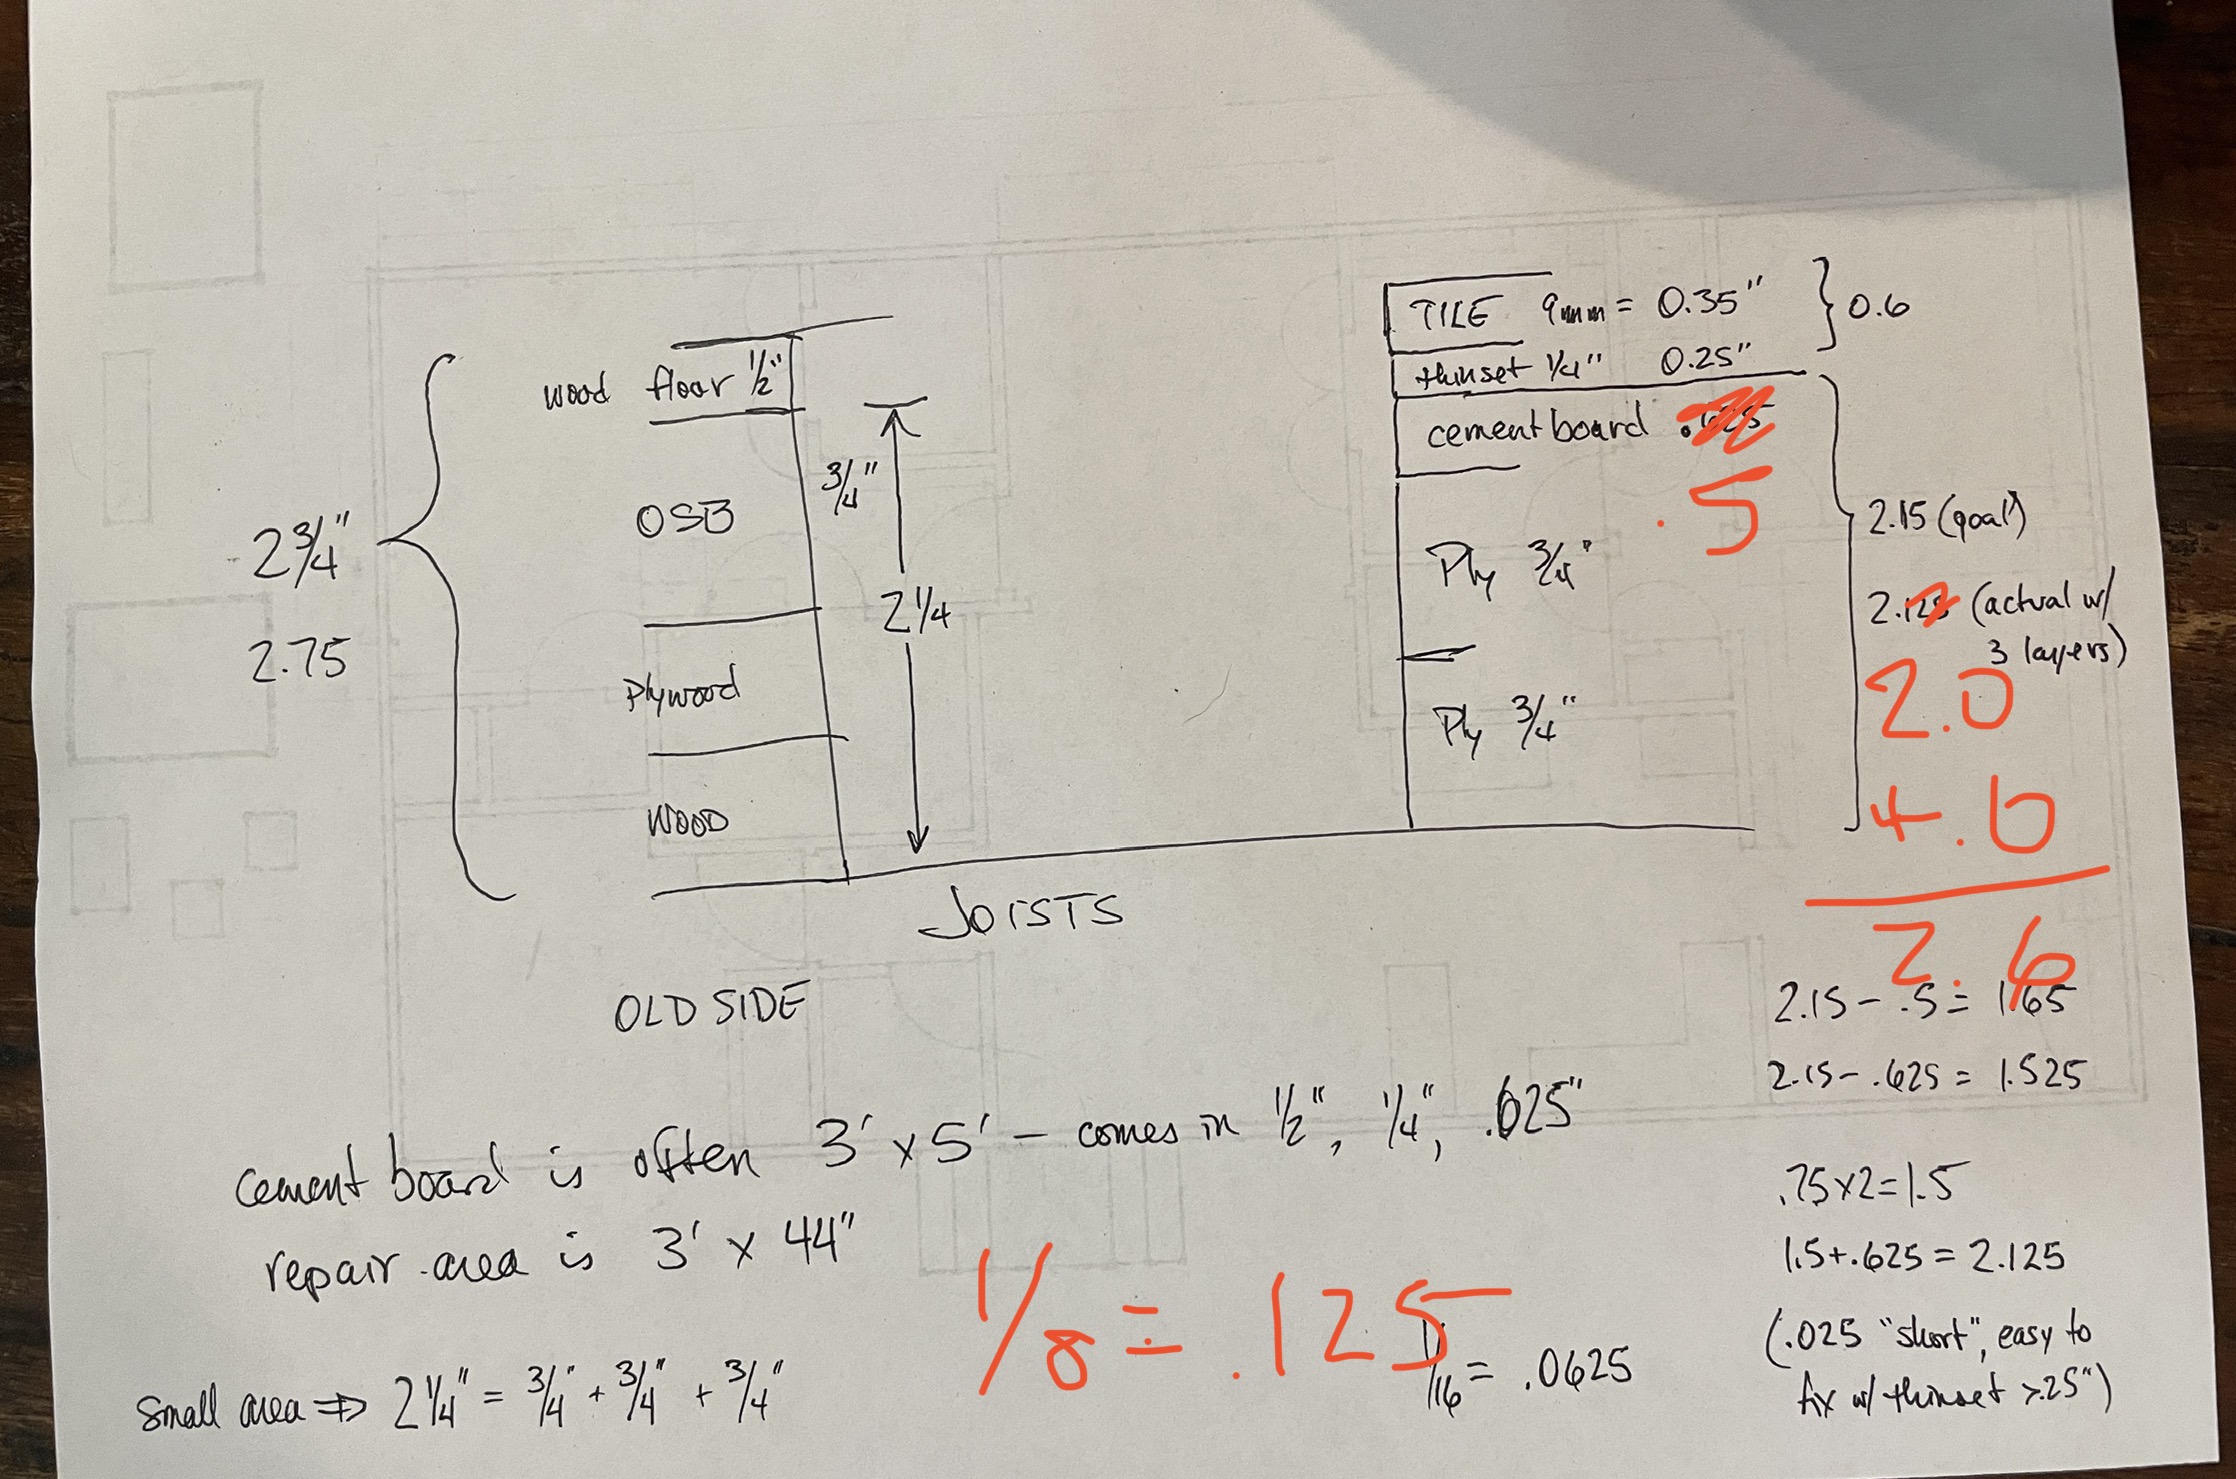 wood floor 1/2"
OSB
3/4"
2 1/4
Plywood
WOOD
2 3/4"
2.75
JOISTS
OLD SIDE
TILE 9mm = 0.35"
0.6
thinset 1/4" 0.25"
cement board .
.5
Ply 3/4"
Ply 3/4"
2.15 (goal)
2.125 (actual w/
3 layers)
2.0
+.6
2.6
2.15 - .5 = 1.65
2.15 - .625 = 1.525
.75x2=1.5
1.5+.625 = 2.125
(.025 "short", easy to
fix w/ thinset >.25")
cement board is often 3' x 5' - comes in 1/2", 1/4", .625"
repair area is 3' x 44"
1/8 = .125
1/16 = .0625
Small area ⇒ 2 1/4" = 3/4" + 3/4" + 3/4"